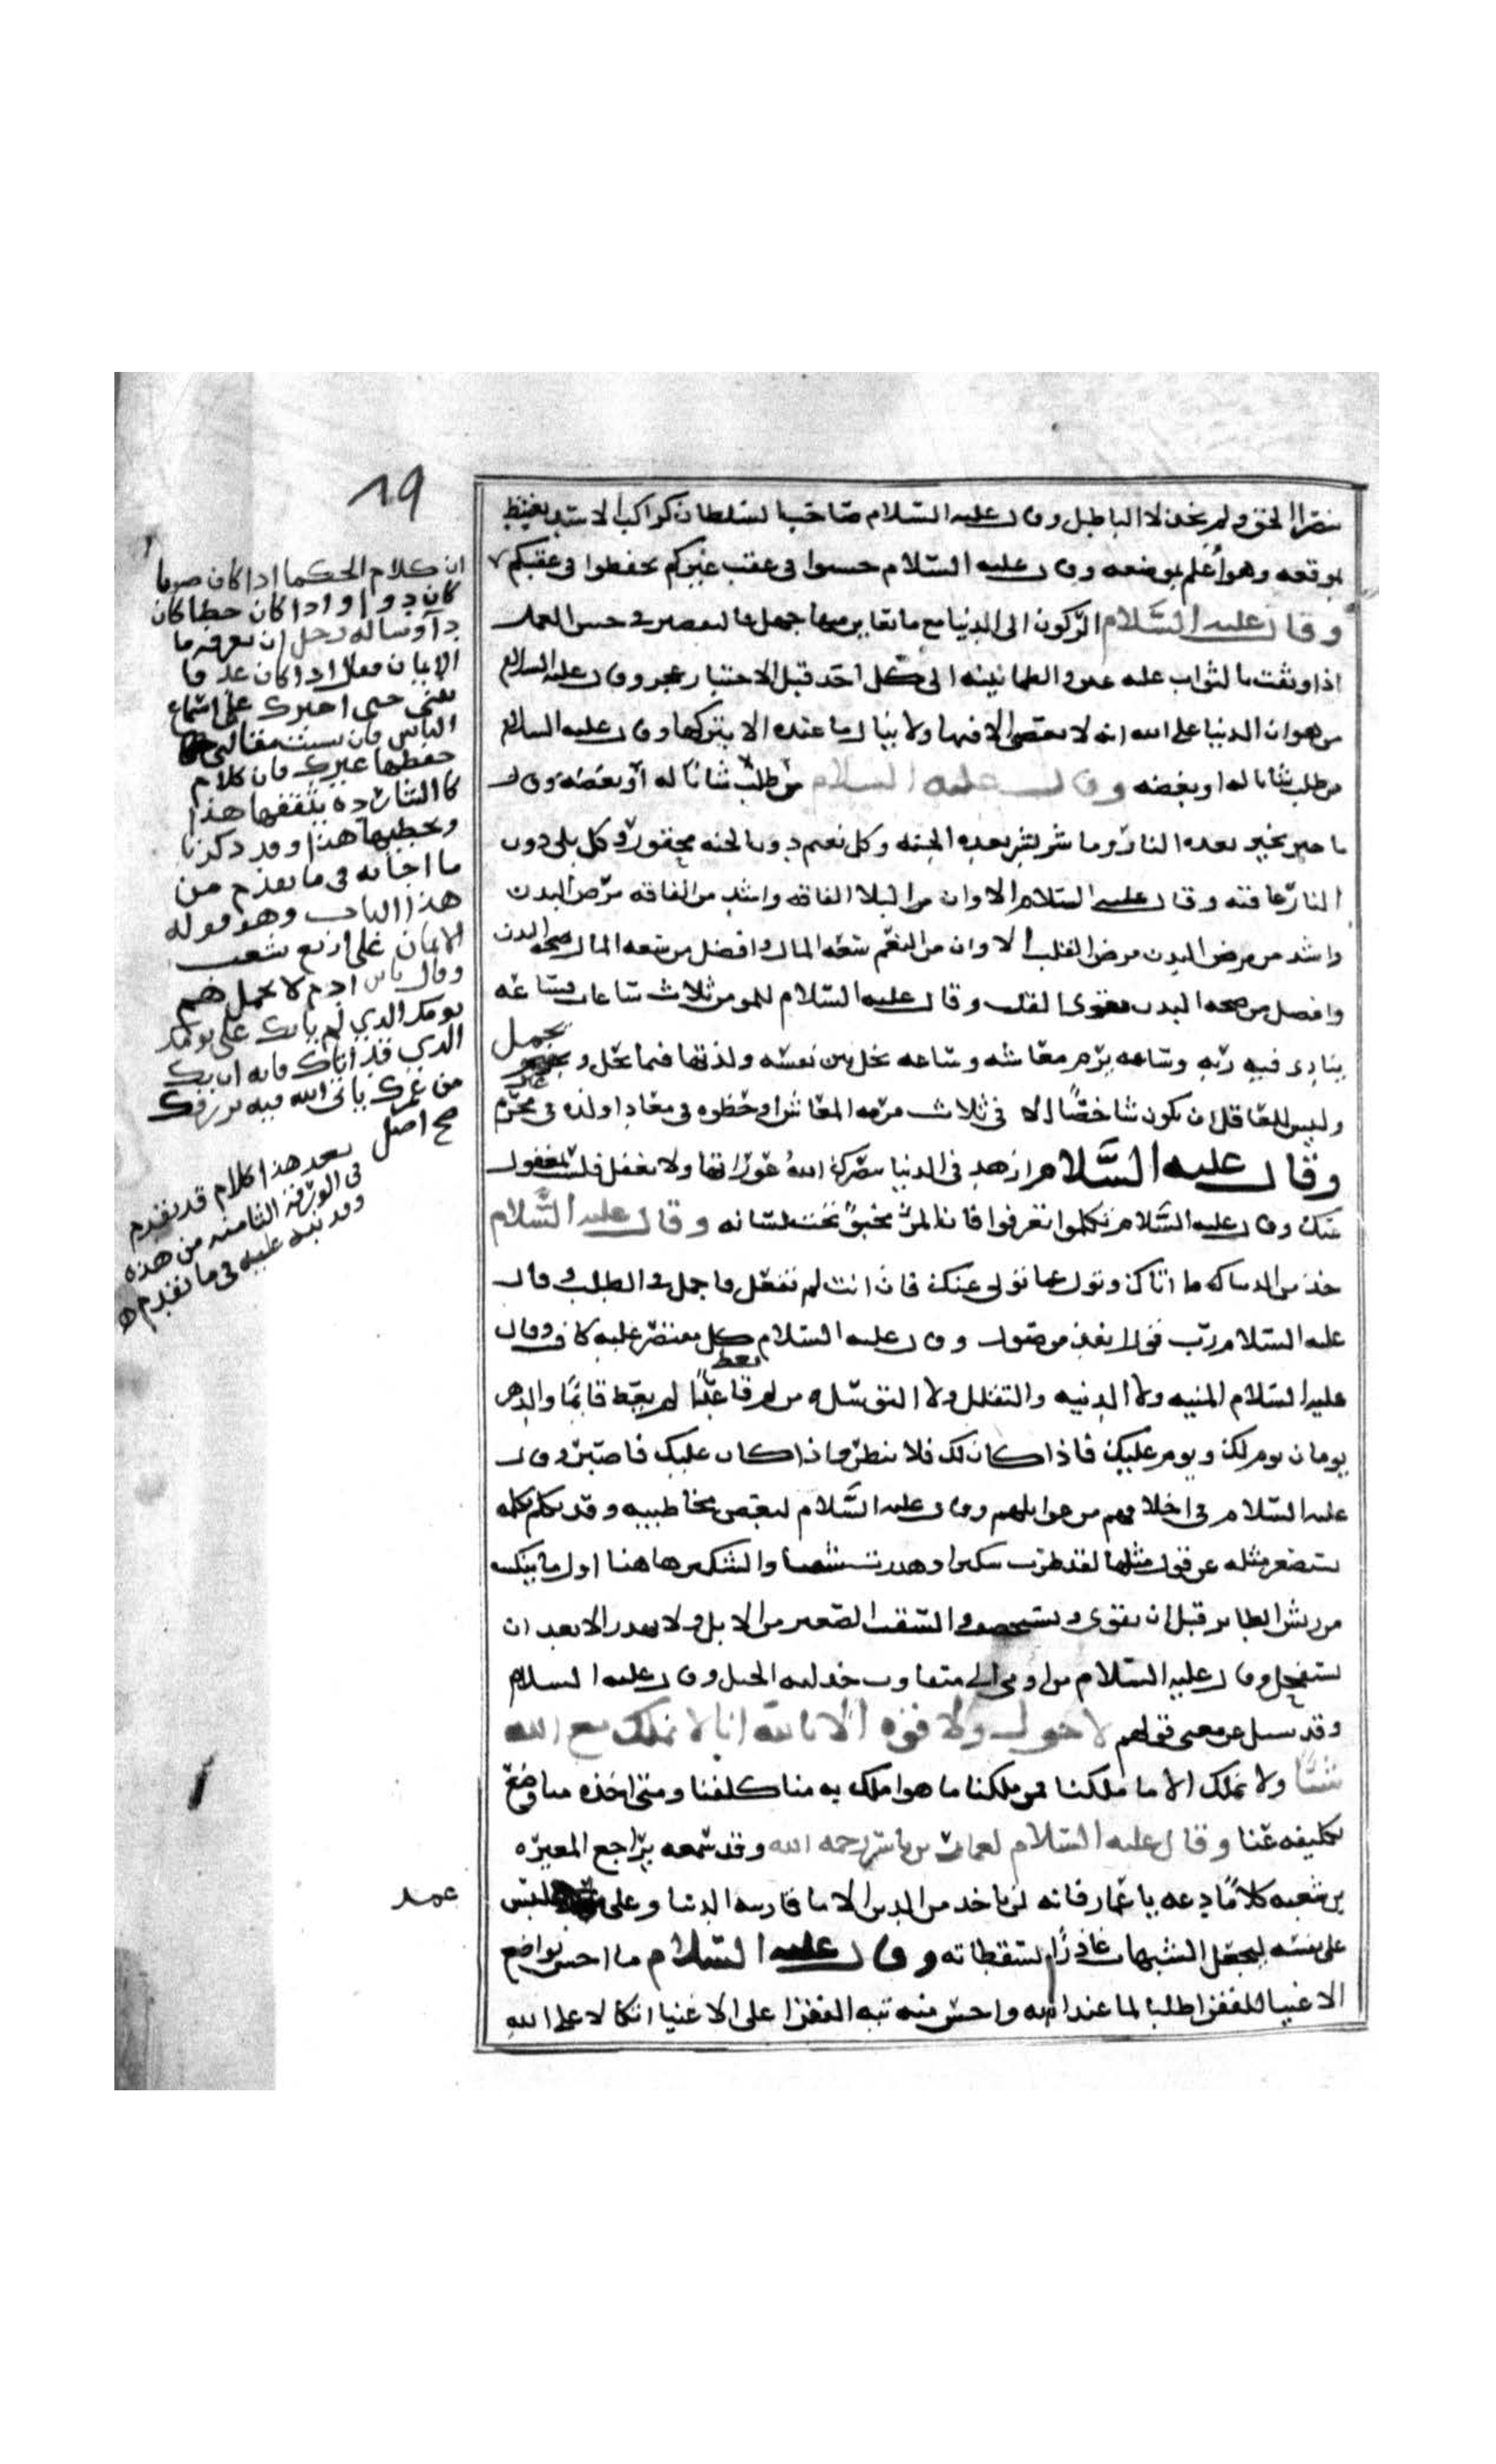 19
ينصرا الحق ولم يخذلا الباطل وقال عليه السلام صاحب السلطان كراكب الاسد يغبط
بموقعه وهو اعلم بموضعه وقال عليه السلام احسنوا في عقب غيركم تحفظوا في عقبكم
وقال عليه السلام الركون الى الدنيا مع ما تعاين منها جهل والتقصير في حسن العمل
اذا وثقت بالثواب عليه غبن والطمانينه الى كل احد قبل الاختبار عجز وقال عليه السلام
من هوان الدنيا على الله انه لا يعصى الا فيها ولا ينال ما عنده الا بتركها وقال عليه السلام
من طلب شيا ناله او بعضه وقال عليه السلام من طلب شيا ناله او بعضه وقال
ما خير بخير بعده النار وما شر بشر بعده الجنه وكل نعيم دون الجنه محقور وكل بلى دون
النار عافيه وقال عليه السلام الا وان من البلا الفاقه واشد من الفاقه مرض البدن
واشد من مرض البدن مرض القلب الا وان من النعم سعه المال وافضل من سعه المال صحه البدن
وافضل من صحه البدن تقوى القلب وقال عليه السلام للمومن ثلاث ساعات فساعه
يناجي فيه ربه وساعه يرم معاشه وساعه يخلي بين نفسه ولذتها فيما يحل و يجمل
وليس للعاقل ان يكون شاخصا الا في ثلاث مرمه لمعاش او خطوه في معاد او لذه في غير محرم
وقال عليه السلام ازهد في الدنيا يبصرك الله عوراتها ولا تغفل فلست بمغفول
عنك وقال عليه السلام تكلموا تعرفوا فان المرء مخبو تحت لسانه وقال عليه السلام
خذ من الدنيا ما اتاك وتول عما تولى عنك فان انت لم تفعل فاجمل في الطلب وقال
عليه السلام رب قول انفذ من صول وقال عليه السلام كل مقتصر عليه كاف وقال
عليه السلام المنيه ولا الدنيه والتقلل ولا التوسل ومن لم يعط قاعدا لم يعط قايما والدهر
يومان يوم لك ويوم عليك فاذا كان لك فلا تبطر واذا كان عليك فاصبر وقال
عليه السلام في اخلاقهم من غوايلهم وقال عليه السلام لبعض مخاطبيه وقد تكلم بكلمه
يستصغر مثله عن قول مثلها لقد طرت شكيرا وهدرت سقبا والشكير هاهنا اول ما ينبت
من ريش الطاير قبل ان يقوى ويستحصف والسقب الصغير من الابل ولا يهدر الا بعد ان
يستفحل وقال عليه السلام من اومى الى متفاوت خذلته الحيل وقال عليه السلام
وقد سيل عن معنى قولهم لا حول ولا قوه الا بالله انا لا نملك مع الله
شيا ولا نملك الا ما ملكنا فمتى ملكنا ما هو املك به منا كلفنا ومتى اخذه منا وضع
تكليفه عنا وقال عليه السلام لعمار بن ياسر رحمه الله وقد سمعه يراجع المغيره
بن شعبه كلاما دعه يا عمار فانه لن ياخذ من الدين الا ما قاربه الدنيا وعلى لبس
على نفسه ليجعل الشبهات عاذرا لسقطاته وقال عليه السلام ما احسن تواضع
الاغنيا للفقرا طلبا لما عند الله واحسن منه تيه الفقرا على الاغنيا اتكالا على الله
ان كلام الحكما اذا كان صوابا
كان دوا واذا كان خطا كان
دآ وساله رجل ان يعرفه ما
الايمان فقال اذا كان غد فا
تني حتى اخبرك على اسماع
الناس فان نسيت مقالتي
حفظها غيرك فان كلام
كالشارده يثقفها هذا
ويخطيها هذا وقد ذكرنا
ما اجابه في ما تقدم من
هذا الباب وهو قوله
الايمان على اربع شعب
وقال يابن ادم لا تحمل هم
يومك الذي لم ياتك على يومك
الذي قد اتاك فانه ان يك
من عمرك ياتي الله فيه برزقك
صح اصل
بعد هذا كلام قد تقدم
في الورقه الثامنه من هذه
وقد نبه عليه في ما تقدم
عمد